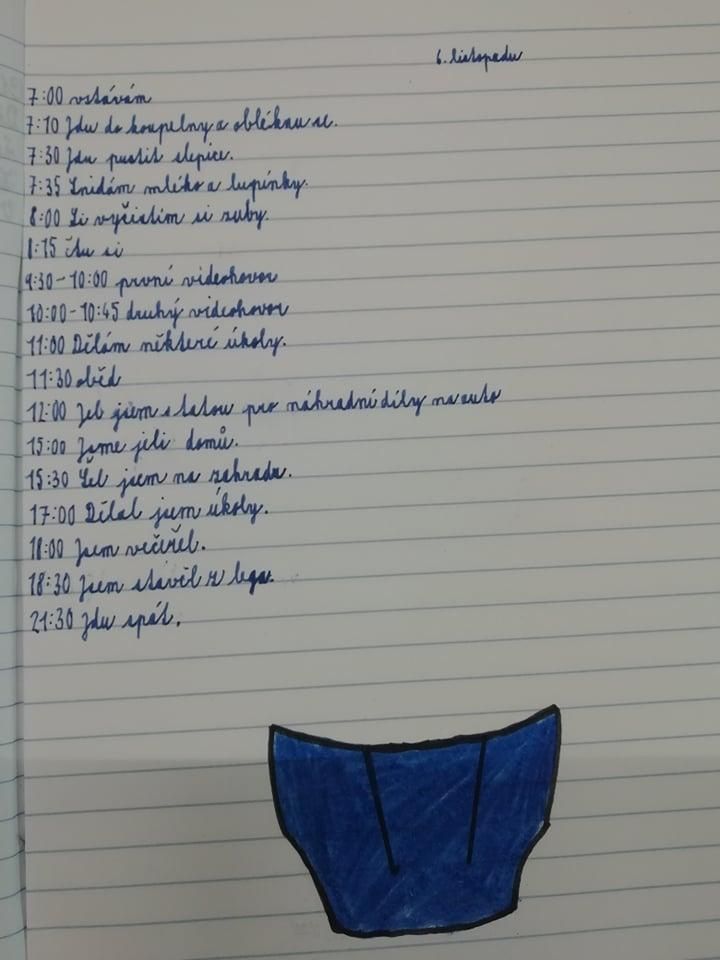 6. listopadu
7:00 vstávám
7:10 Jdu do koupelny a oblékau se.
7:30 Jdu pustit slepice.
7:35 Snídám mléko a lupínky.
8:00 Si vyčistim si zuby.
8:15 čtu si
9:30-10:00 první videohovor
10:00-10:45 druhý videohovor
11:00 Dělám některé úkoly.
11:30 oběd
12:00 Jel jsem s tatou pro náhradní díly na auto
15:00 Jsme jeli domů.
15:30 Šel jsem na zahradu.
17:00 Dělal jsem úkoly.
18:00 Jsem večeřel.
18:30 Jsem stavěl z lega.
21:30 Jdu spát.